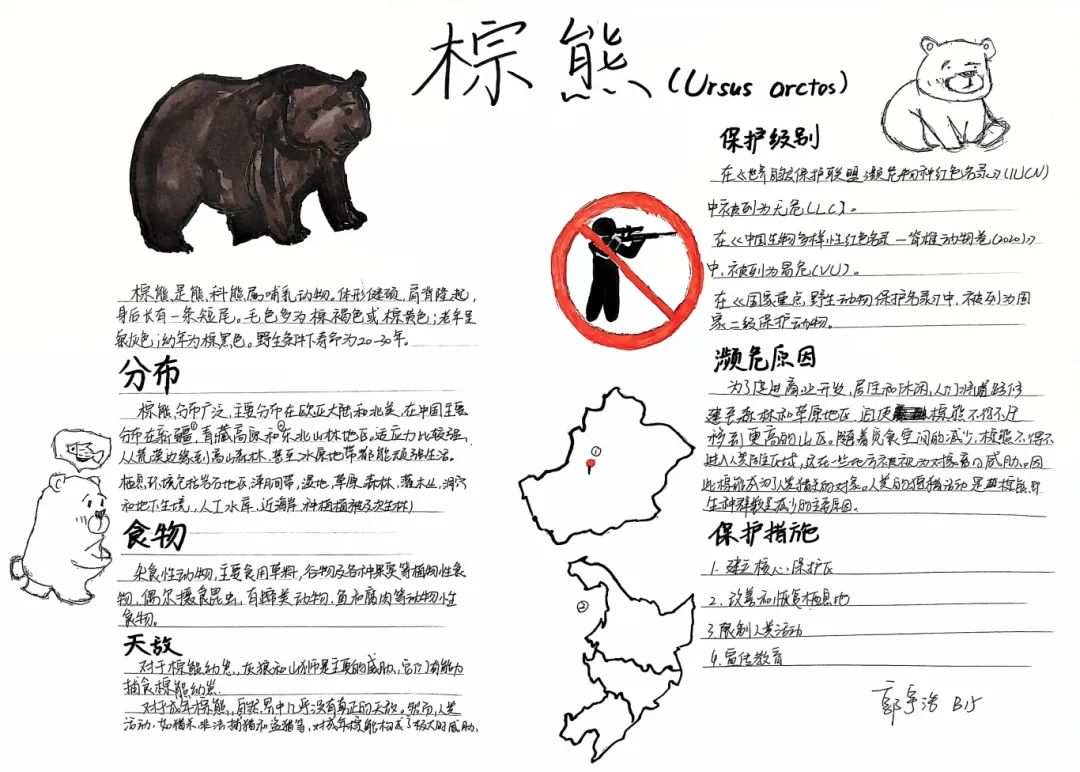 棕熊 (Ursus arctos)
棕熊是熊科熊属哺乳动物。体形健硕,肩背隆起,
身后长有一条短尾。毛色多为棕褐色或棕黄色;老年呈
银灰色;幼年为棕黑色。野生条件下寿命为20-30年。
分布
棕熊分布广泛,主要分布在欧亚大陆和北美,在中国主要
分布在新疆①、青藏高原和东北②山林地区。适应力比较强,
从荒漠边缘到高山森林,甚至冰原地带都能顽强生活。
栖息环境包括岩石地区、潮间带,湿地,草原,森林,灌木丛,洞穴
和地下生境,人工水库,近海岸,种植植被及次生林)
食物
杂食性动物,主要食用草料,谷物及各种果实等植物性食
物,偶尔摄食昆虫,有蹄类动物,鱼和腐肉等动物性
食物。
天敌
对于棕熊幼崽,灰狼和山狮是主要的威胁,它们有能力
捕食棕熊幼崽.
对于成年棕熊,自然界中几乎没有真正的天敌。然而,人类
活动,如猎杀、非法捕猎和盗猎等,对成年棕熊构成了极大的威胁,
保护级别
在《世界自然保护联盟濒危物种红色名录》(IUCN)
中被列为无危(LC)。
在《中国生物多样性红色名录—脊椎动物卷(2020)》
中,被列为易危(VU)。
在《国家重点野生动物保护名录》中,被列为国
家二级保护动物。
濒危原因
为了促进商业开发,居住和休闲,人们将道路修
建至森林和草原地区,迫使棕熊不得不迁
移到更高的山区。随着觅食空间的减少,棕熊不得不
进入人类居住区域,这在一些地方被视为对家畜的威胁。因
此棕熊成为了人类猎杀的对象。人类的狩猎活动是棕熊野
生种群数量减少的主要原因。
保护措施
1. 建立核心保护区
2. 改善和恢复栖息地
3. 限制人类活动
4. 宣传教育
①
②
郭宇浩 B15